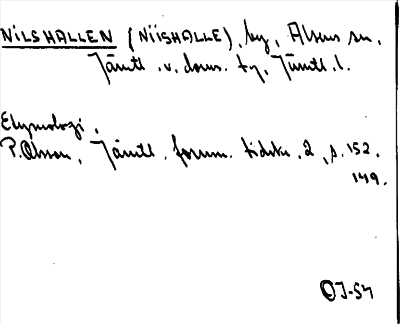 NILSHALLEN (NIISHALLE), by, Alsens sn,
Jämtl. v. doms. ty, Jämtl. l.
Etymologi,
P. Olsson, Jämtl. fornm. tidskr. 2, s. 152.
149.
OJ-54